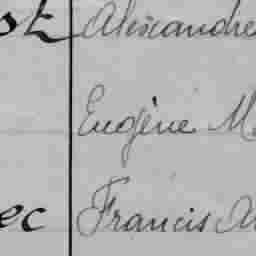 st Alexandre
Eugène M
ec Francis A